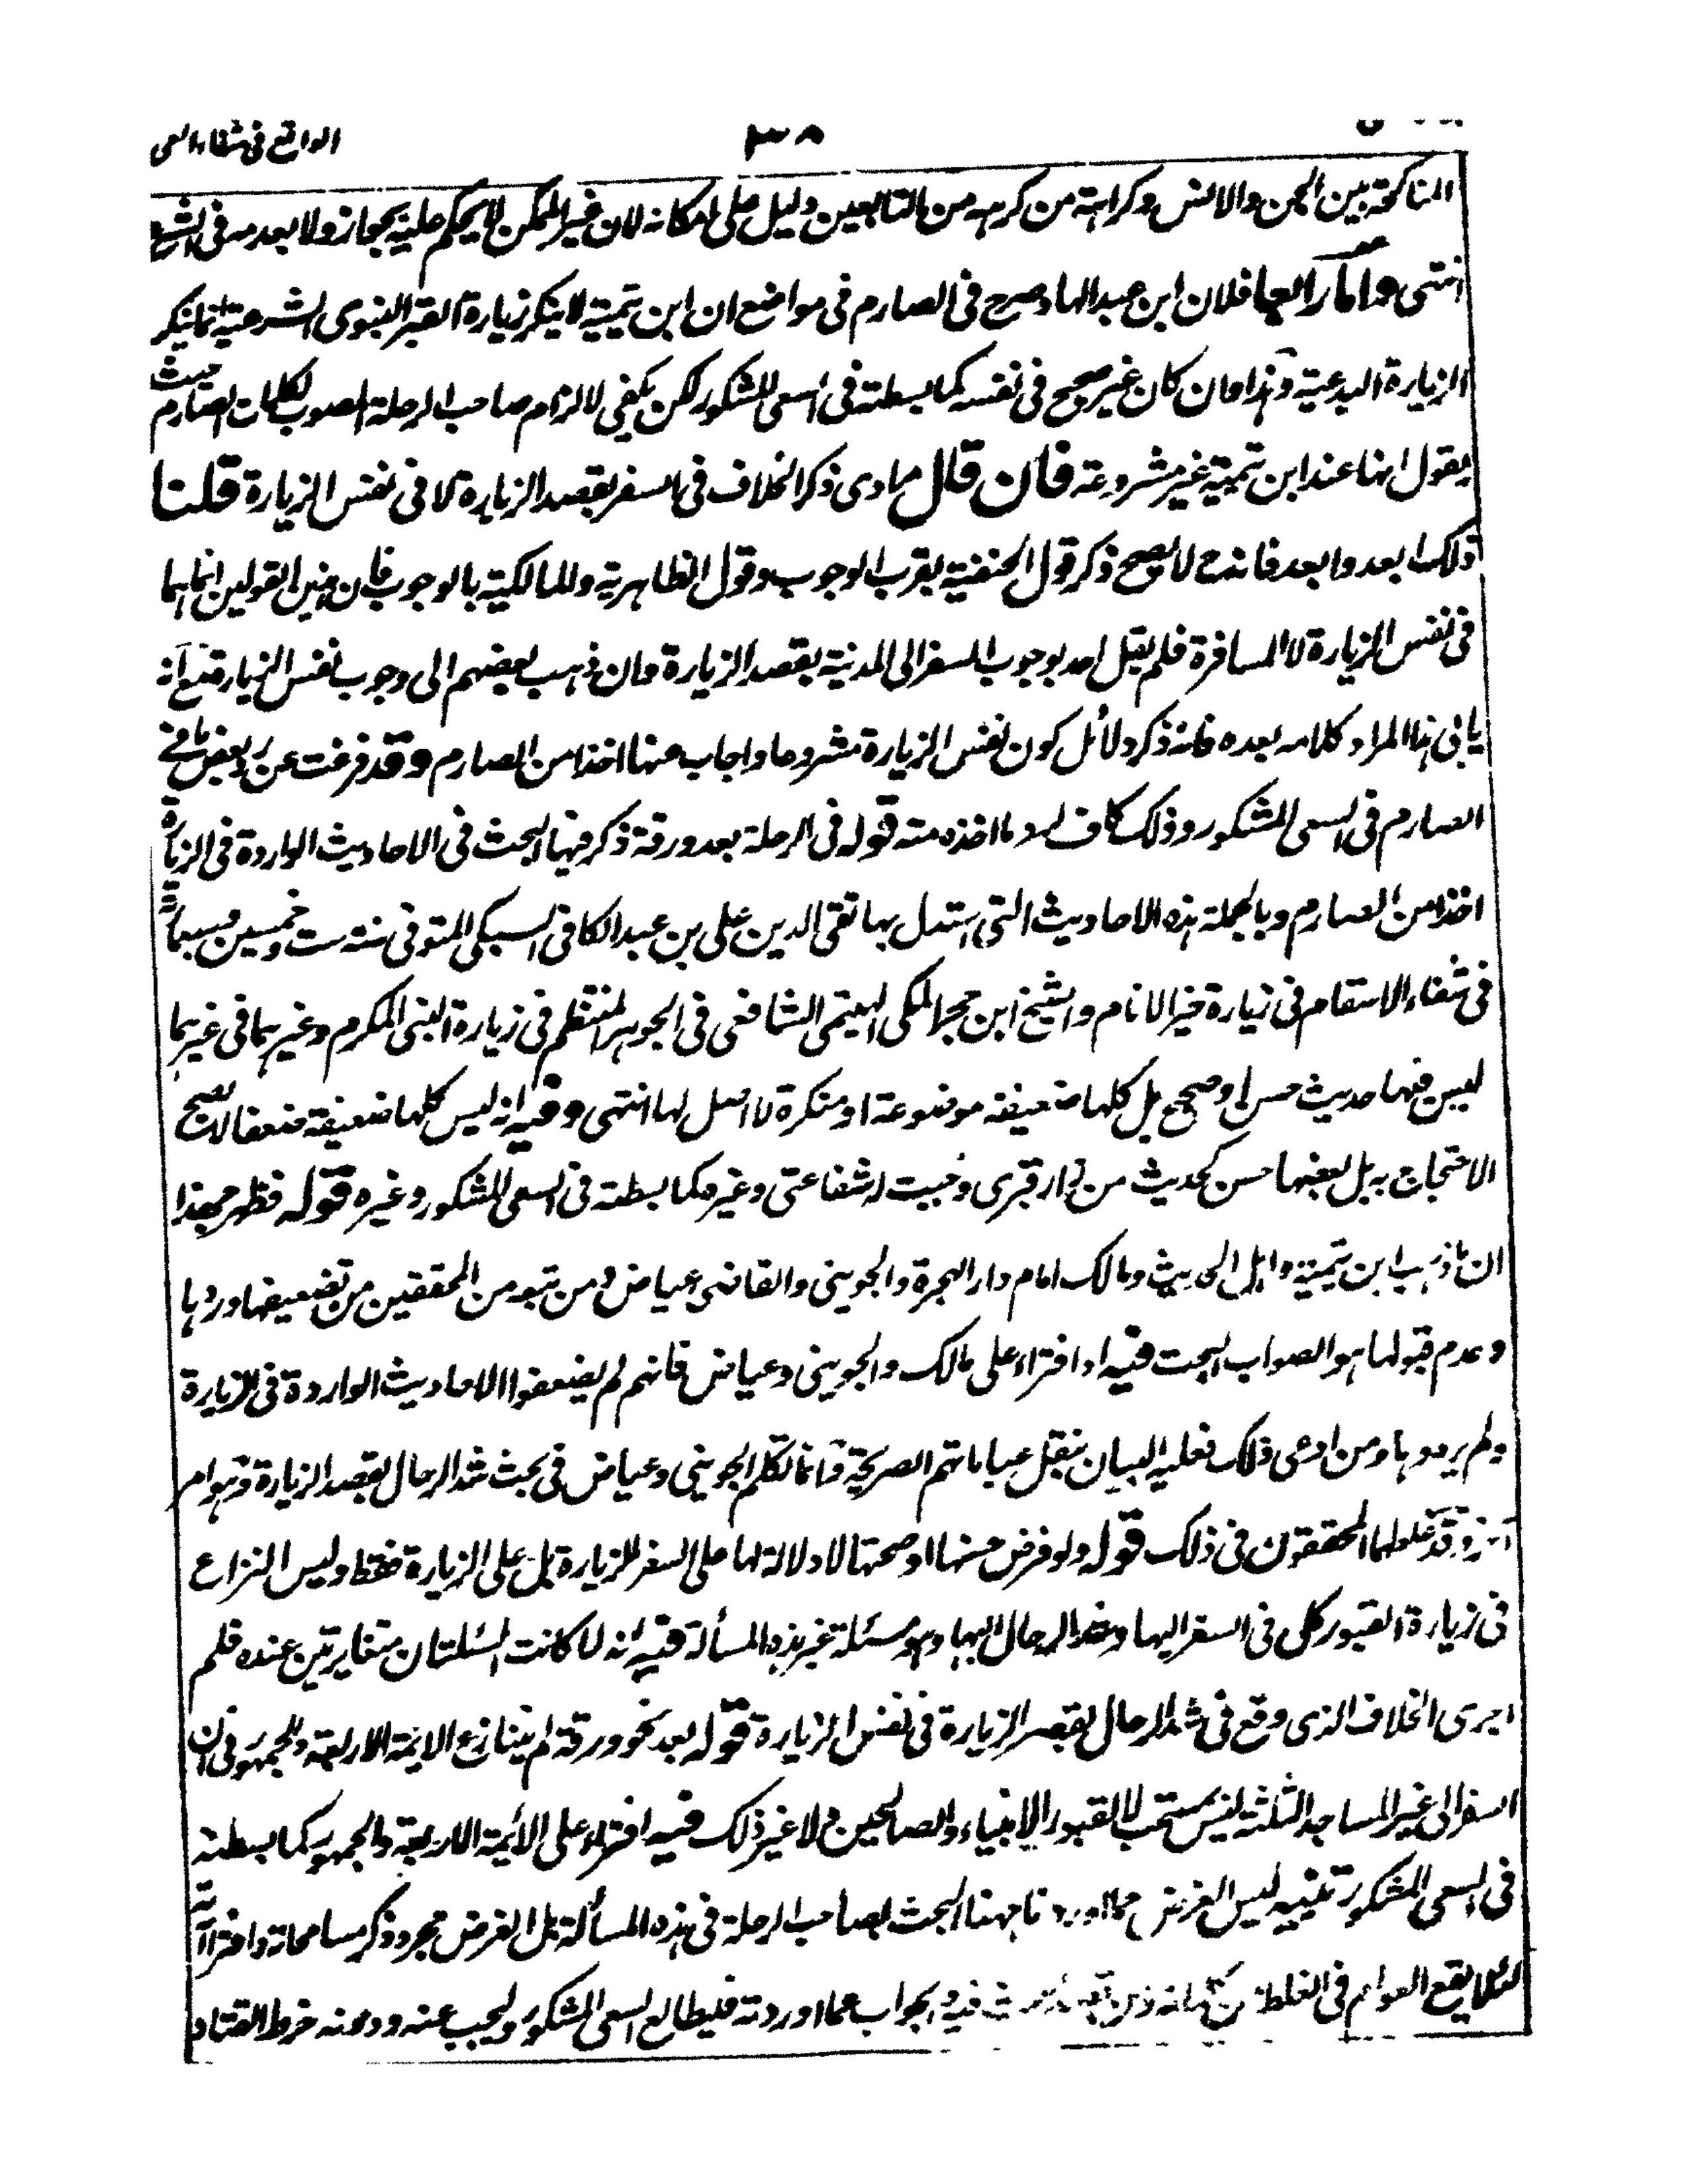 الواقع في شفاء العي
٣٨
المناكحة بين الجن والانس وكراهة من كرهه من التابعين دليل على امكانه لان غير الممكن لا يحكم عليه بجواز ولا بعدمه في الشرع
انتهى واما رابعا فلان ابن عبد الهاد صرح في الصارم في مواضع ان ابن تيمية لا ينكر زيارة القبر النبوي الشرعية انما ينكر
الزيارة البدعية وهذا وان كان غير صحيح في نفسه كما بسطته في السعي المشكور لكن يكفي لالزام صاحب الرحلة المصوب لكلمات الصارم حيث
يقول انها عند ابن تيمية غير مشروعة فان قال مرادي ذكر الخلاف في السفر بقصد الزيارة لا في نفس الزيارة قلنا
ذلك ابعد وابعد فانه ح لا يصح ذكر قول الحنفية بقرب الوجوب وقول الظاهرية والمالكية بالوجوب فان هذين القولين انما هما
في نفس الزيارة لا المسافرة فلم يقل احد بوجوب السفر الى المدينة بقصد الزيارة وان ذهب بعضهم الى وجوب نفس الزيارة مع انه
يابى هذا المراد كلامه بعده فانه ذكر دلائل كون نفس الزيارة مشروعا واجاب عنها اخذا من الصارم وقد فرغت عن رد بعض ما في
الصارم في السعي المشكور وذلك كاف لرد ما اخذه منه قوله في الرحلة بعد ورقة ذكر فيها البحث في الاحاديث الواردة في الزيارة
اخذا من الصارم وبالجملة هذه الاحاديث التي استدل بها تقي الدين علي بن عبد الكافي السبكي المتوفى سنة ست وخمسين وسبعمائة
في شفاء الاسقام في زيارة خير الانام والشيخ ابن حجر المكي الهيتمي الشافعي في الجوهر المنتظم في زيارة النبي المكرم وغيرهما في غيرهما
ليس فيها حديث حسن او صحيح بل كلها ضعيفة موضوعة او منكرة لا اصل لها انتهى وفيه انه ليس كلها ضعيفة ضعفا لا يصح
الاحتجاج به بل بعضها حسن كحديث من زار قبري وجبت له شفاعتي وغيره كما بسطته في السعي المشكور وغيره قوله فظهر بهذا
ان ما ذهب ابن تيمية واهل الحديث ومالك امام دار الهجرة والجويني والقاضي عياض ومن تبعه من المحققين من تضعيفها وردها
وعدم قبولها هو الصواب البحت فيه ادا افتراء على مالك والجويني وعياض فانهم لم يضعفوا الاحاديث الواردة في الزيارة
ولم يردوها ومن ادعى ذلك فعليه البيان بنقل عباراتهم الصريحة وانما تكلم الجويني وعياض في بحث شد الرحال بقصد الزيارة وهو امر
آخر وقد غلطهما المحققون في ذلك قوله ولو فرض حسنها او صحتها لا دلالة لها على السفر للزيارة بل على الزيارة فقط وليس النزاع
في زيارة القبور كل في السفر اليها وشد الرحال اليها وهو مسئلة غير هذه المسألة فيه انه لما كانت المسئلتان متغايرتين عنده فلم
اجرى الخلاف الذي وقع في شد الرحال بقصد الزيارة في نفس الزيارة قوله بعد نحو ورقة لم يتنازع الائمة الاربعة والجمهور في ان
السفر الى غير المساجد الثلثة ليس بمستحب لا لقبور الانبياء والصالحين ولا غير ذلك فيه افتراء على الائمة الاربعة والجمهور كما بسطته
في السعي المشكور تنبيه ليس الغرض مما اوردنا ههنا البحث لصاحب الرحلة في هذه المسألة بل الغرض مجرد ذكر مسامحاته وافتراآته
لئلا يقع العوام في الغلط فيه والجواب عما اوردته فليطالع السعي المشكور وليجب عنه ودونه خرط القتاد